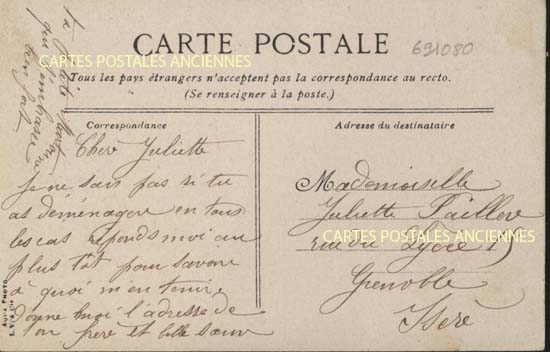 CARTE POSTALE
691080
Tous les pays étrangers n'acceptent pas la correspondance au recto.
(Se renseigner à la poste.)
Correspondance
Chère Juliette
Je ne sais pas si tu
as déménager en tous
les cas réponds moi au
plus tôt pour savoir
à quoi m'en tenir,
donne moi l'adresse de
ton frère et belle sœur
ta
qui t'embrasse
bien fort
Adresse du destinataire
Mademoiselle
Juliette
rue du Lycée
Grenoble
Isère
CARTES POSTALES ANCIENNES
CARTES POSTALES ANCIENNES